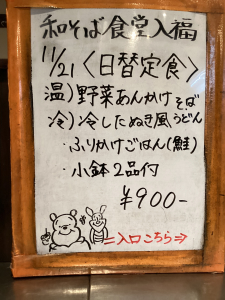 和そば食堂入福
11/21〈日替定食〉
温)野菜あんかけそば
冷)冷したぬき風うどん
・ふりかけごはん(鮭)
・小鉢2品付
¥900-
=入口こちら⇒